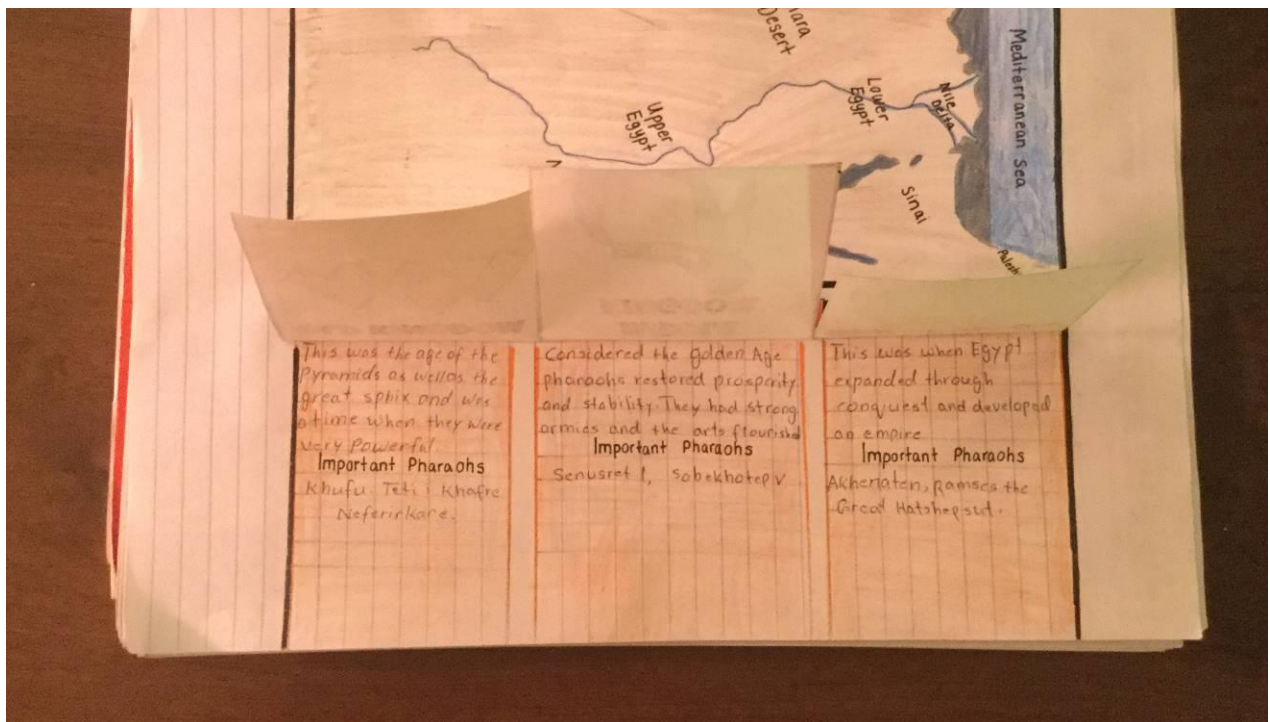 hara
Desert
Mediterranean Sea
Lower
Egypt
Nile
Delta
Upper
Egypt
Sinai
Palest
This was the age of the
Pyramids as well as the
great sphix and was
a time when they were
very Powerful
Important Pharaohs
Khufu Teti i Khafre
Neferirkare.
Considered the Golden Age
pharaohs restored prosperity
and stability. They had strong
armies and the arts flourished
Important Pharaohs
Senusret I, Sobekhotep V
This was when Egypt
expanded through
conquest and developed
an empire
Important Pharaohs
Akhenaten, Ramses the
Great Hatshepsut.